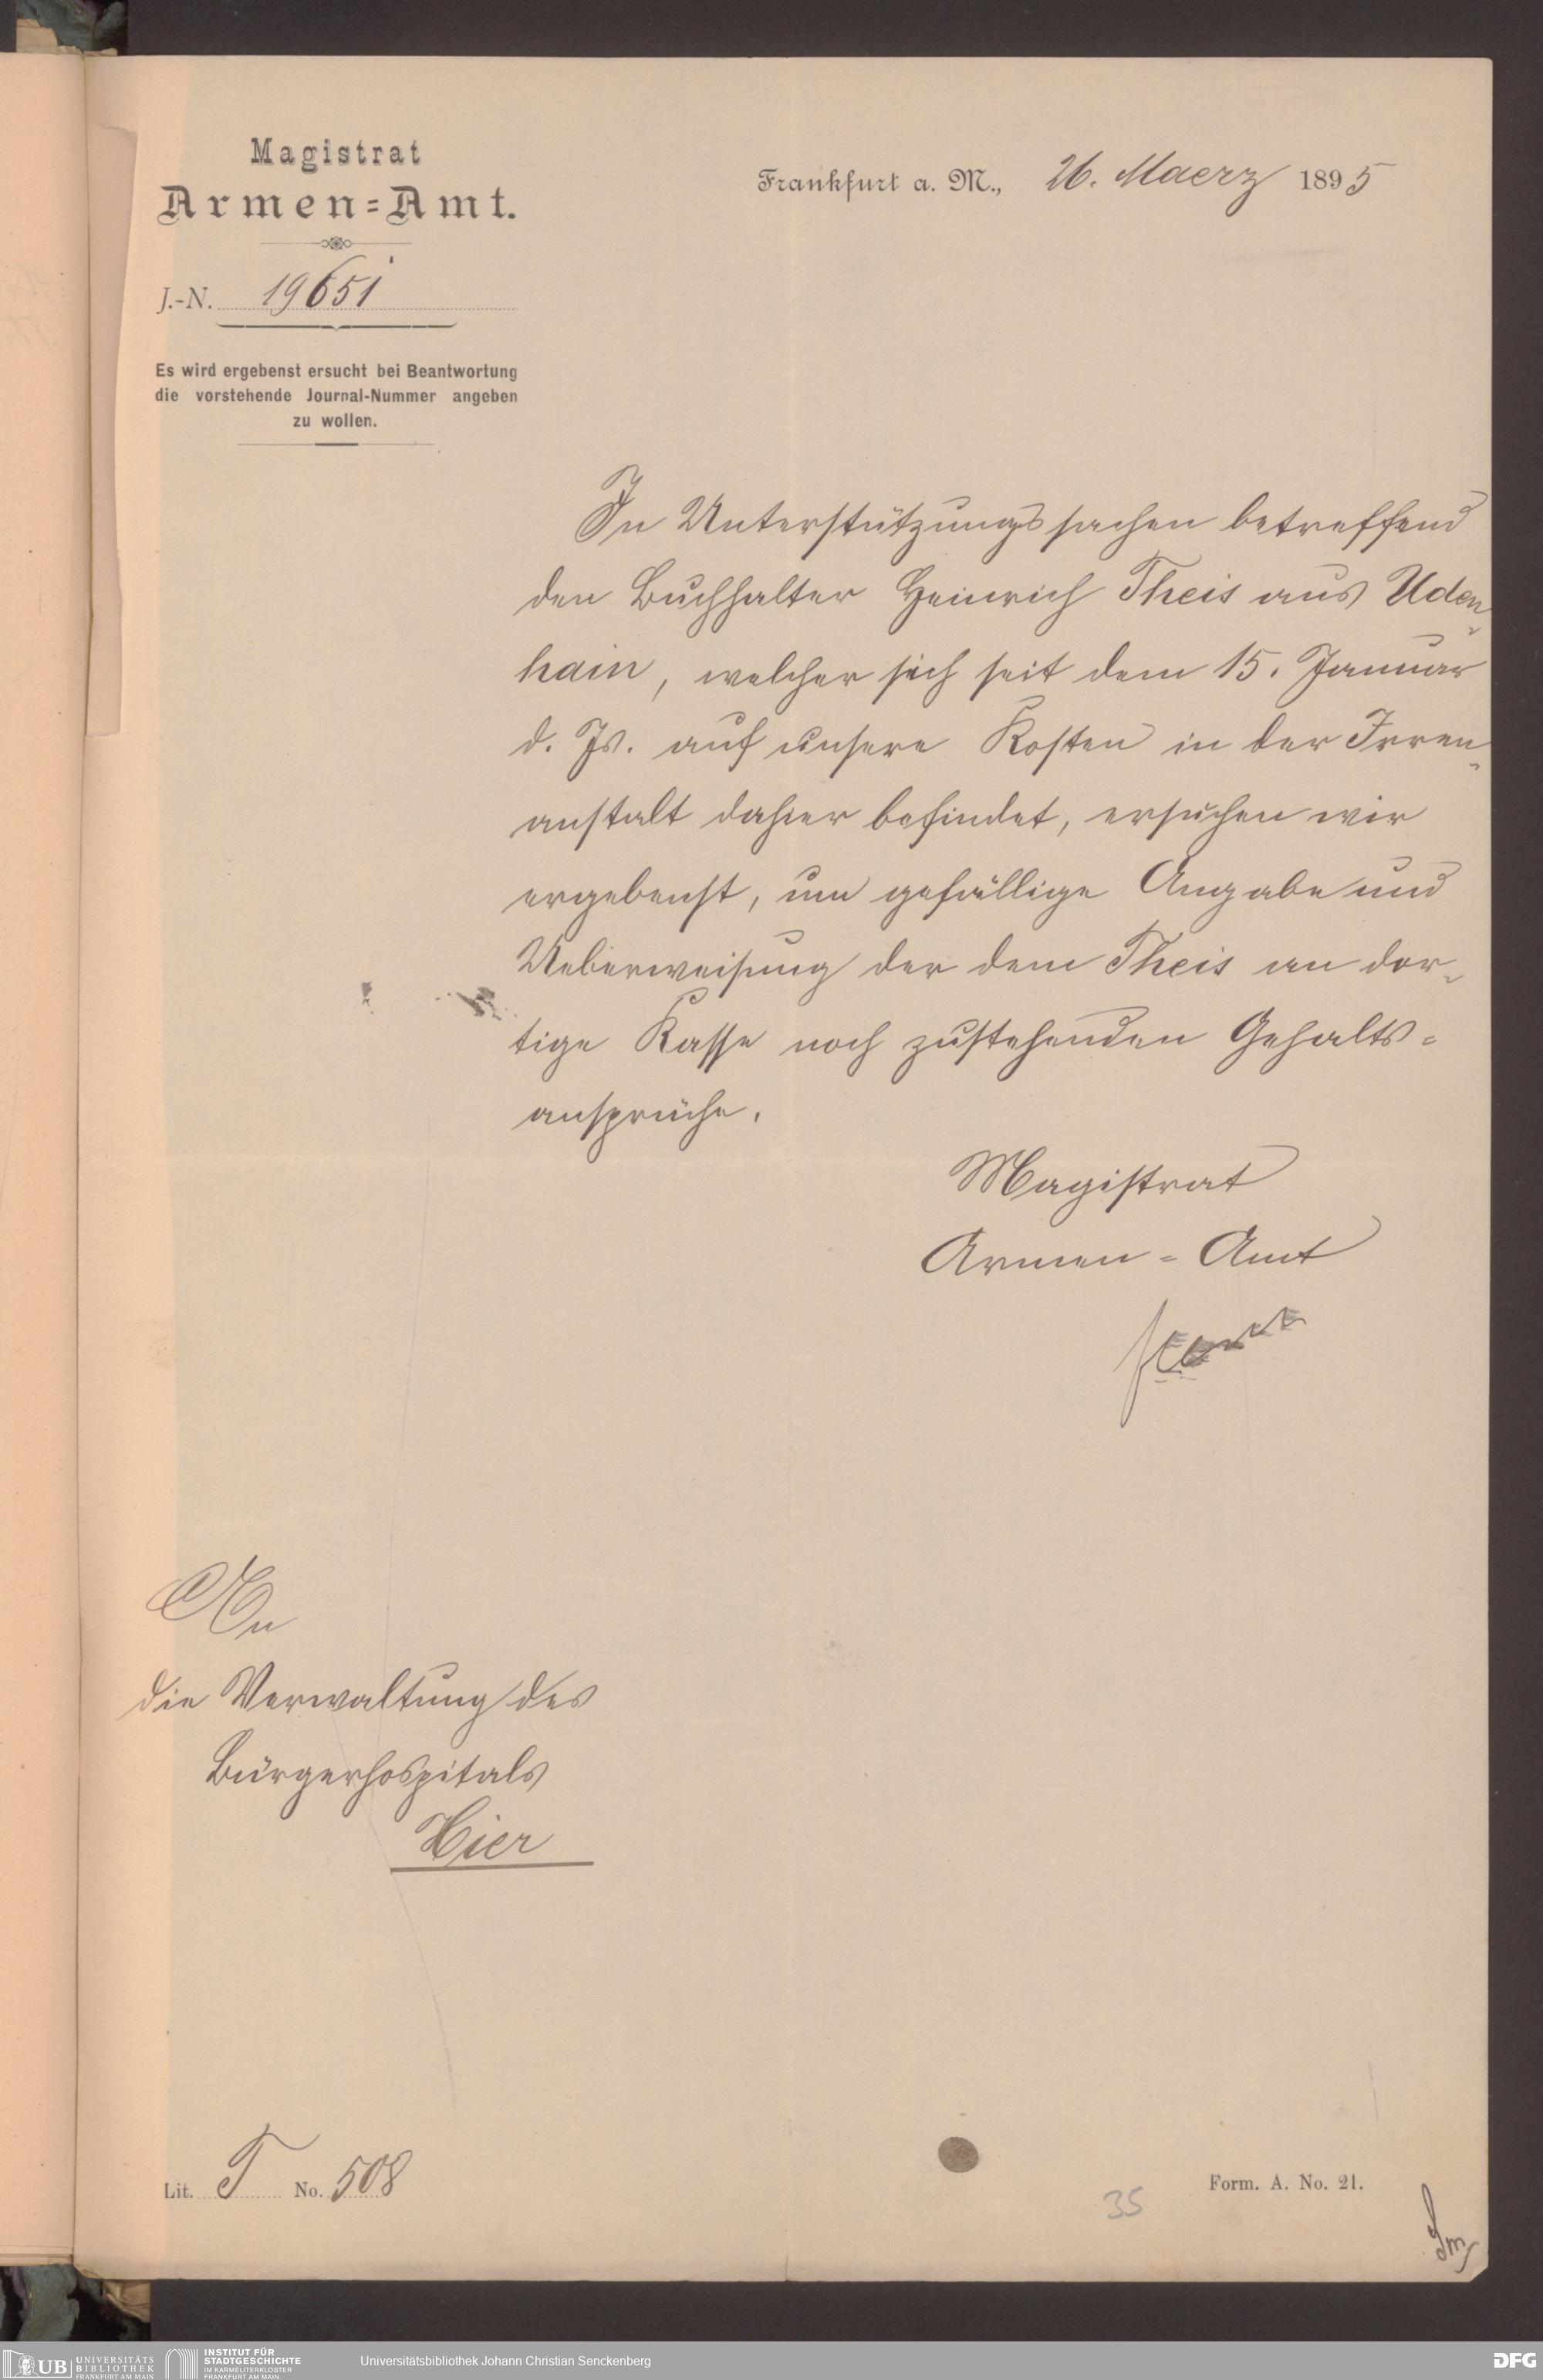 Magistrat
Armen=Amt.
Frankfurt a. M., 26. Maerz 1895
J.-N. 19651
Es wird ergebenst ersucht bei Beantwortung
die vorstehende Journal-Nummer angeben
zu wollen.
In Unterstützungssachen betreffend
den Buchhalter Heinrich Theis aus Uden-
hain, welcher sich seit dem 15. Januar
d. Js. auf unsere Kosten in der Irren-
anstalt dahier befindet, ersuchen wir
ergebenst, um gefällige Angabe und
Ueberweisung der dem Theis an dor-
tige Kasse noch zustehenden Gehalts=
ansprüche.
Magistrat
Armen=Amt
An
die Verwaltung des
Bürgerhospitals
Hier
Lit. T No. 508
35
Form. A. No. 21.
UB UNIVERSITÄTS
BIBLIOTHEK
FRANKFURT AM MAIN
INSTITUT FÜR
STADTGESCHICHTE
IM KARMELITERKLOSTER
FRANKFURT AM MAIN
Universitätsbibliothek Johann Christian Senckenberg
DFG